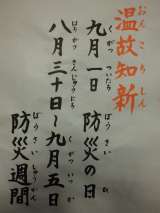 おんこちしん
温故知新
くがつ ついたち ぼうさい ひ
九月一日 防災の日
はちがつさんじゅうにち くがついつか
八月三十日〜九月五日
ぼうさいしゅうかん
防災週間